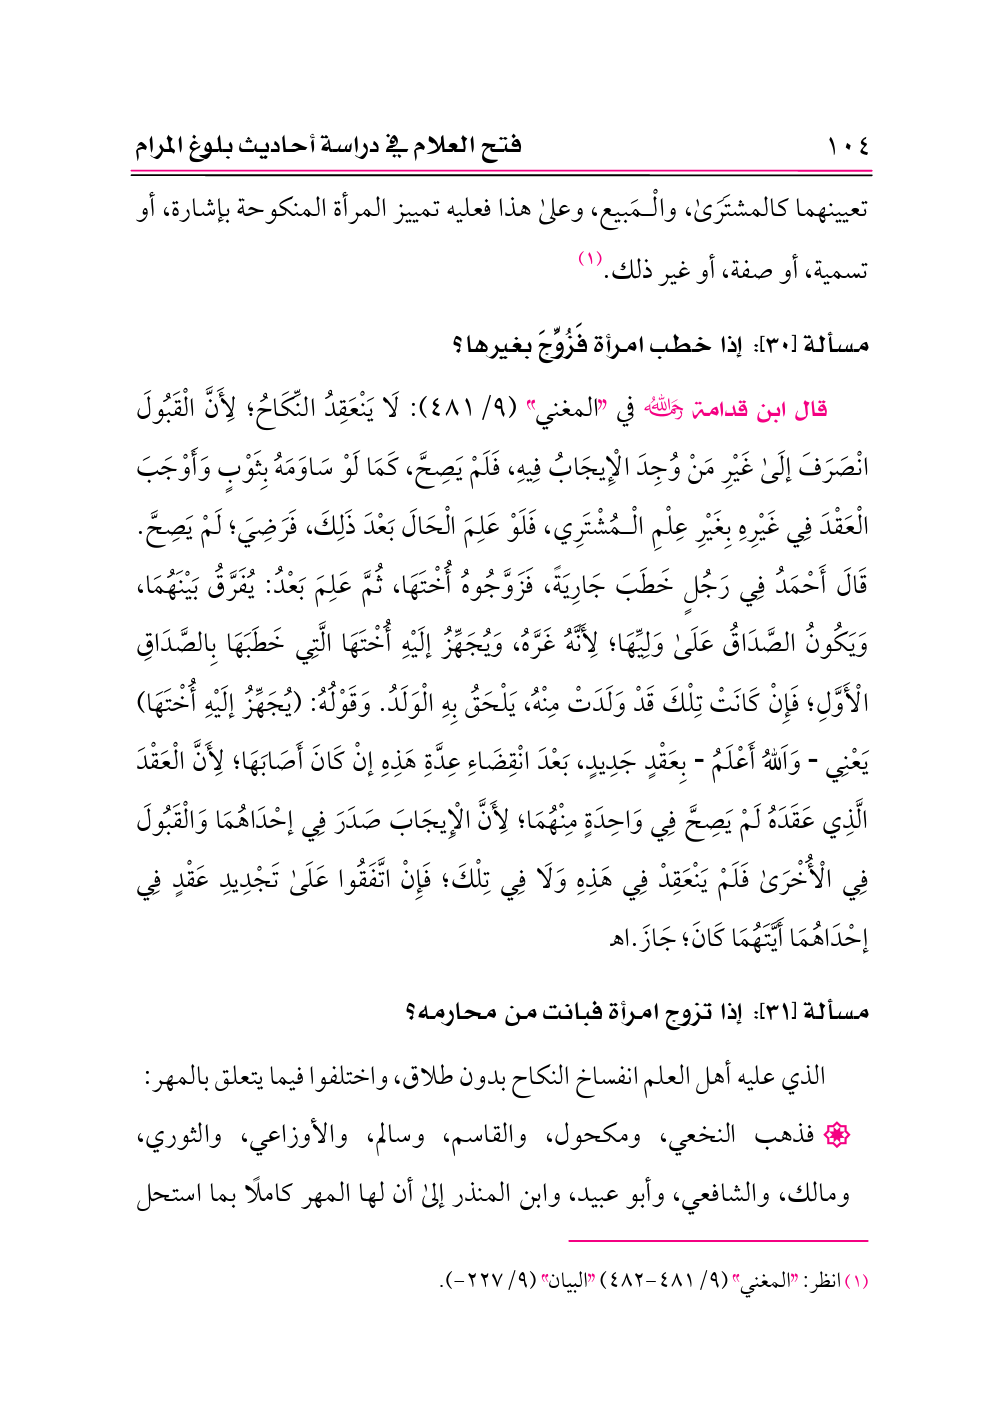 ١٠٤ فتح العلام في دراسة أحاديث بلوغ المرام
تعيينهما كالمشترَىٰ، والْـمَبيع، وعلىٰ هذا فعليه تمييز المرأة المنكوحة بإشارة، أو
تسمية، أو صفة، أو غير ذلك.(١)
مسألة [٣٠]: إذا خطب امرأة فَزُوِّجَ بغيرها؟
قال ابن قدامة رحمه الله في "المغني" (٩/ ٤٨١): لَا يَنْعَقِدُ النِّكَاحُ؛ لِأَنَّ الْقَبُولَ
انْصَرَفَ إلَىٰ غَيْرِ مَنْ وُجِدَ الْإِيجَابُ فِيهِ، فَلَمْ يَصِحَّ، كَمَا لَوْ سَاوَمَهُ بِثَوْبٍ وَأَوْجَبَ
الْعَقْدَ فِي غَيْرِهِ بِغَيْرِ عِلْمِ الْـمُشْتَرِي، فَلَوْ عَلِمَ الْحَالَ بَعْدَ ذَلِكَ، فَرَضِيَ؛ لَمْ يَصِحَّ.
قَالَ أَحْمَدُ فِي رَجُلٍ خَطَبَ جَارِيَةً، فَزَوَّجُوهُ أُخْتَهَا، ثُمَّ عَلِمَ بَعْدُ: يُفَرَّقُ بَيْنَهُمَا،
وَيَكُونُ الصَّدَاقُ عَلَىٰ وَلِيِّهَا؛ لِأَنَّهُ غَرَّهُ، وَيُجَهِّزُ إلَيْهِ أُخْتَهَا الَّتِي خَطَبَهَا بِالصَّدَاقِ
الْأَوَّلِ؛ فَإِنْ كَانَتْ تِلْكَ قَدْ وَلَدَتْ مِنْهُ، يَلْحَقُ بِهِ الْوَلَدُ. وَقَوْلُهُ: (يُجَهِّزُ إلَيْهِ أُخْتَهَا)
يَعْنِي - وَاَللهُ أَعْلَمُ - بِعَقْدٍ جَدِيدٍ، بَعْدَ انْقِضَاءِ عِدَّةِ هَذِهِ إنْ كَانَ أَصَابَهَا؛ لِأَنَّ الْعَقْدَ
الَّذِي عَقَدَهُ لَمْ يَصِحَّ فِي وَاحِدَةٍ مِنْهُمَا؛ لِأَنَّ الْإِيجَابَ صَدَرَ فِي إحْدَاهُمَا وَالْقَبُولَ
فِي الْأُخْرَىٰ فَلَمْ يَنْعَقِدْ فِي هَذِهِ وَلَا فِي تِلْكَ؛ فَإِنْ اتَّفَقُوا عَلَىٰ تَجْدِيدِ عَقْدٍ فِي
إحْدَاهُمَا أَيَّتَهُمَا كَانَ؛ جَازَ.اهـ
مسألة [٣١]: إذا تزوج امرأة فبانت من محارمه؟
الذي عليه أهل العلم انفساخ النكاح بدون طلاق، واختلفوا فيما يتعلق بالمهر:
فذهب النخعي، ومكحول، والقاسم، وسالم، والأوزاعي، والثوري،
ومالك، والشافعي، وأبو عبيد، وابن المنذر إلىٰ أن لها المهر كاملًا بما استحل
(١) انظر: "المغني" (٩/ ٤٨١-٤٨٢) "البيان" (٩/ ٢٢٧-).